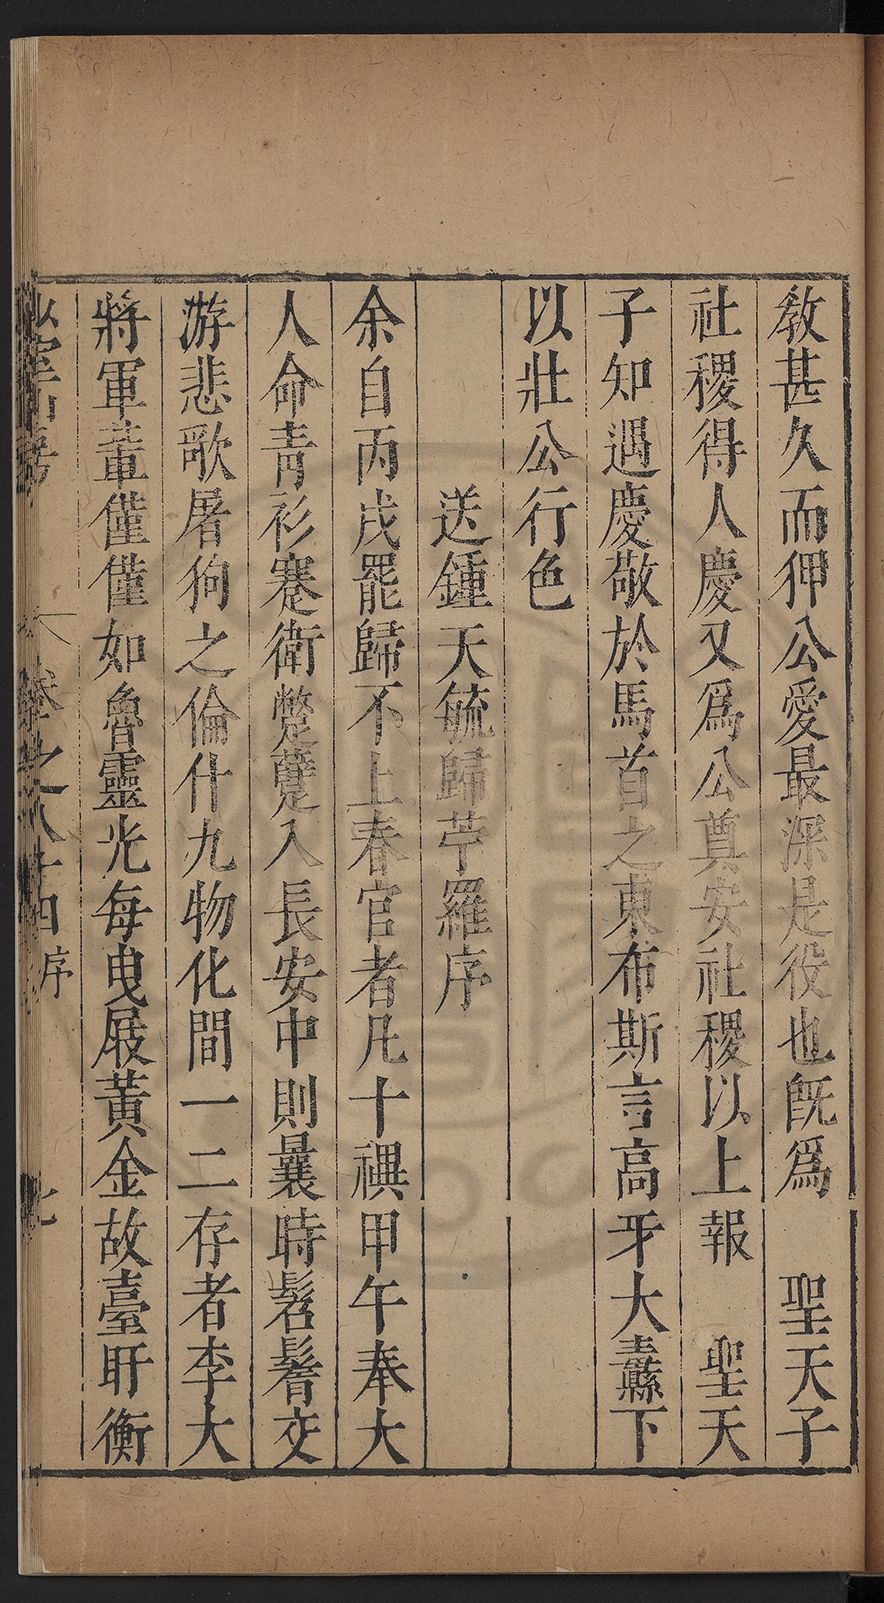 敎甚久而狎公愛最深是役也旣爲　聖天子
社稷得人慶又爲公奠安社稷以上報　聖天
子知遇慶敬於馬首之東布斯言高牙大纛下
以壯公行色
送鍾天毓歸苧羅序
余自丙戌罷歸不上春官者凡十禩甲午奉大
人命靑衫蹇衛蹩躠入長安中則曩時髫鬌交
游悲歌屠狗之倫什九物化間一二存者李大
將軍輩僅僅如魯靈光每曳屐黃金故臺盱衡
卷之八十四 序